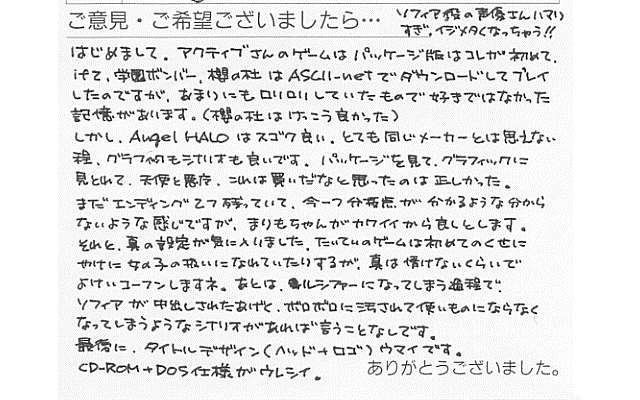 ご意見・ご希望ございましたら…
ソフィア役の声優さんハマり
すぎ、イジメタくなっちゃう!!
はじめまして。アクティブさんのゲームはパッケージ版はコレが初めて、
if 2、学園ボンバー、櫻の杜はASCII-netでダウンロードしてプレイ
したのですが、あまりにもロリロリしていたもので好きではなかった
記憶があります。(櫻の杜はけっこう良かった)
しかし、Angel HALOはスゴク良い。とても同じメーカーとは思えない
程、グラフィックもシナリオも良いです。パッケージを見て、グラフィックに
見とれて、天使と悪魔、これは買いだなと思ったのは正しかった。
まだエンディング2つ残っていて、今一つ分岐点が分かるような分から
ないような感じですが、まりもちゃんがカワイイから良しとします。
それと、真の設定が気に入りました。たいていのゲームは初めてのくせに
やけに女の子の扱いになれていたりするが、真は情けないくらいで
よけいコーフンしますネ。あとは、ルシファーになってしまう過程で
ソフィアが中出しされたあげく、ボロボロに汚されて使いものにならなく
なってしまうようなシナリオがあれば言うことなしです。
最後に、タイトルデザイン(ヘッド+ロゴ)ウマイです。
CD-ROM+DOS仕様がウレシイ。
ありがとうございました。